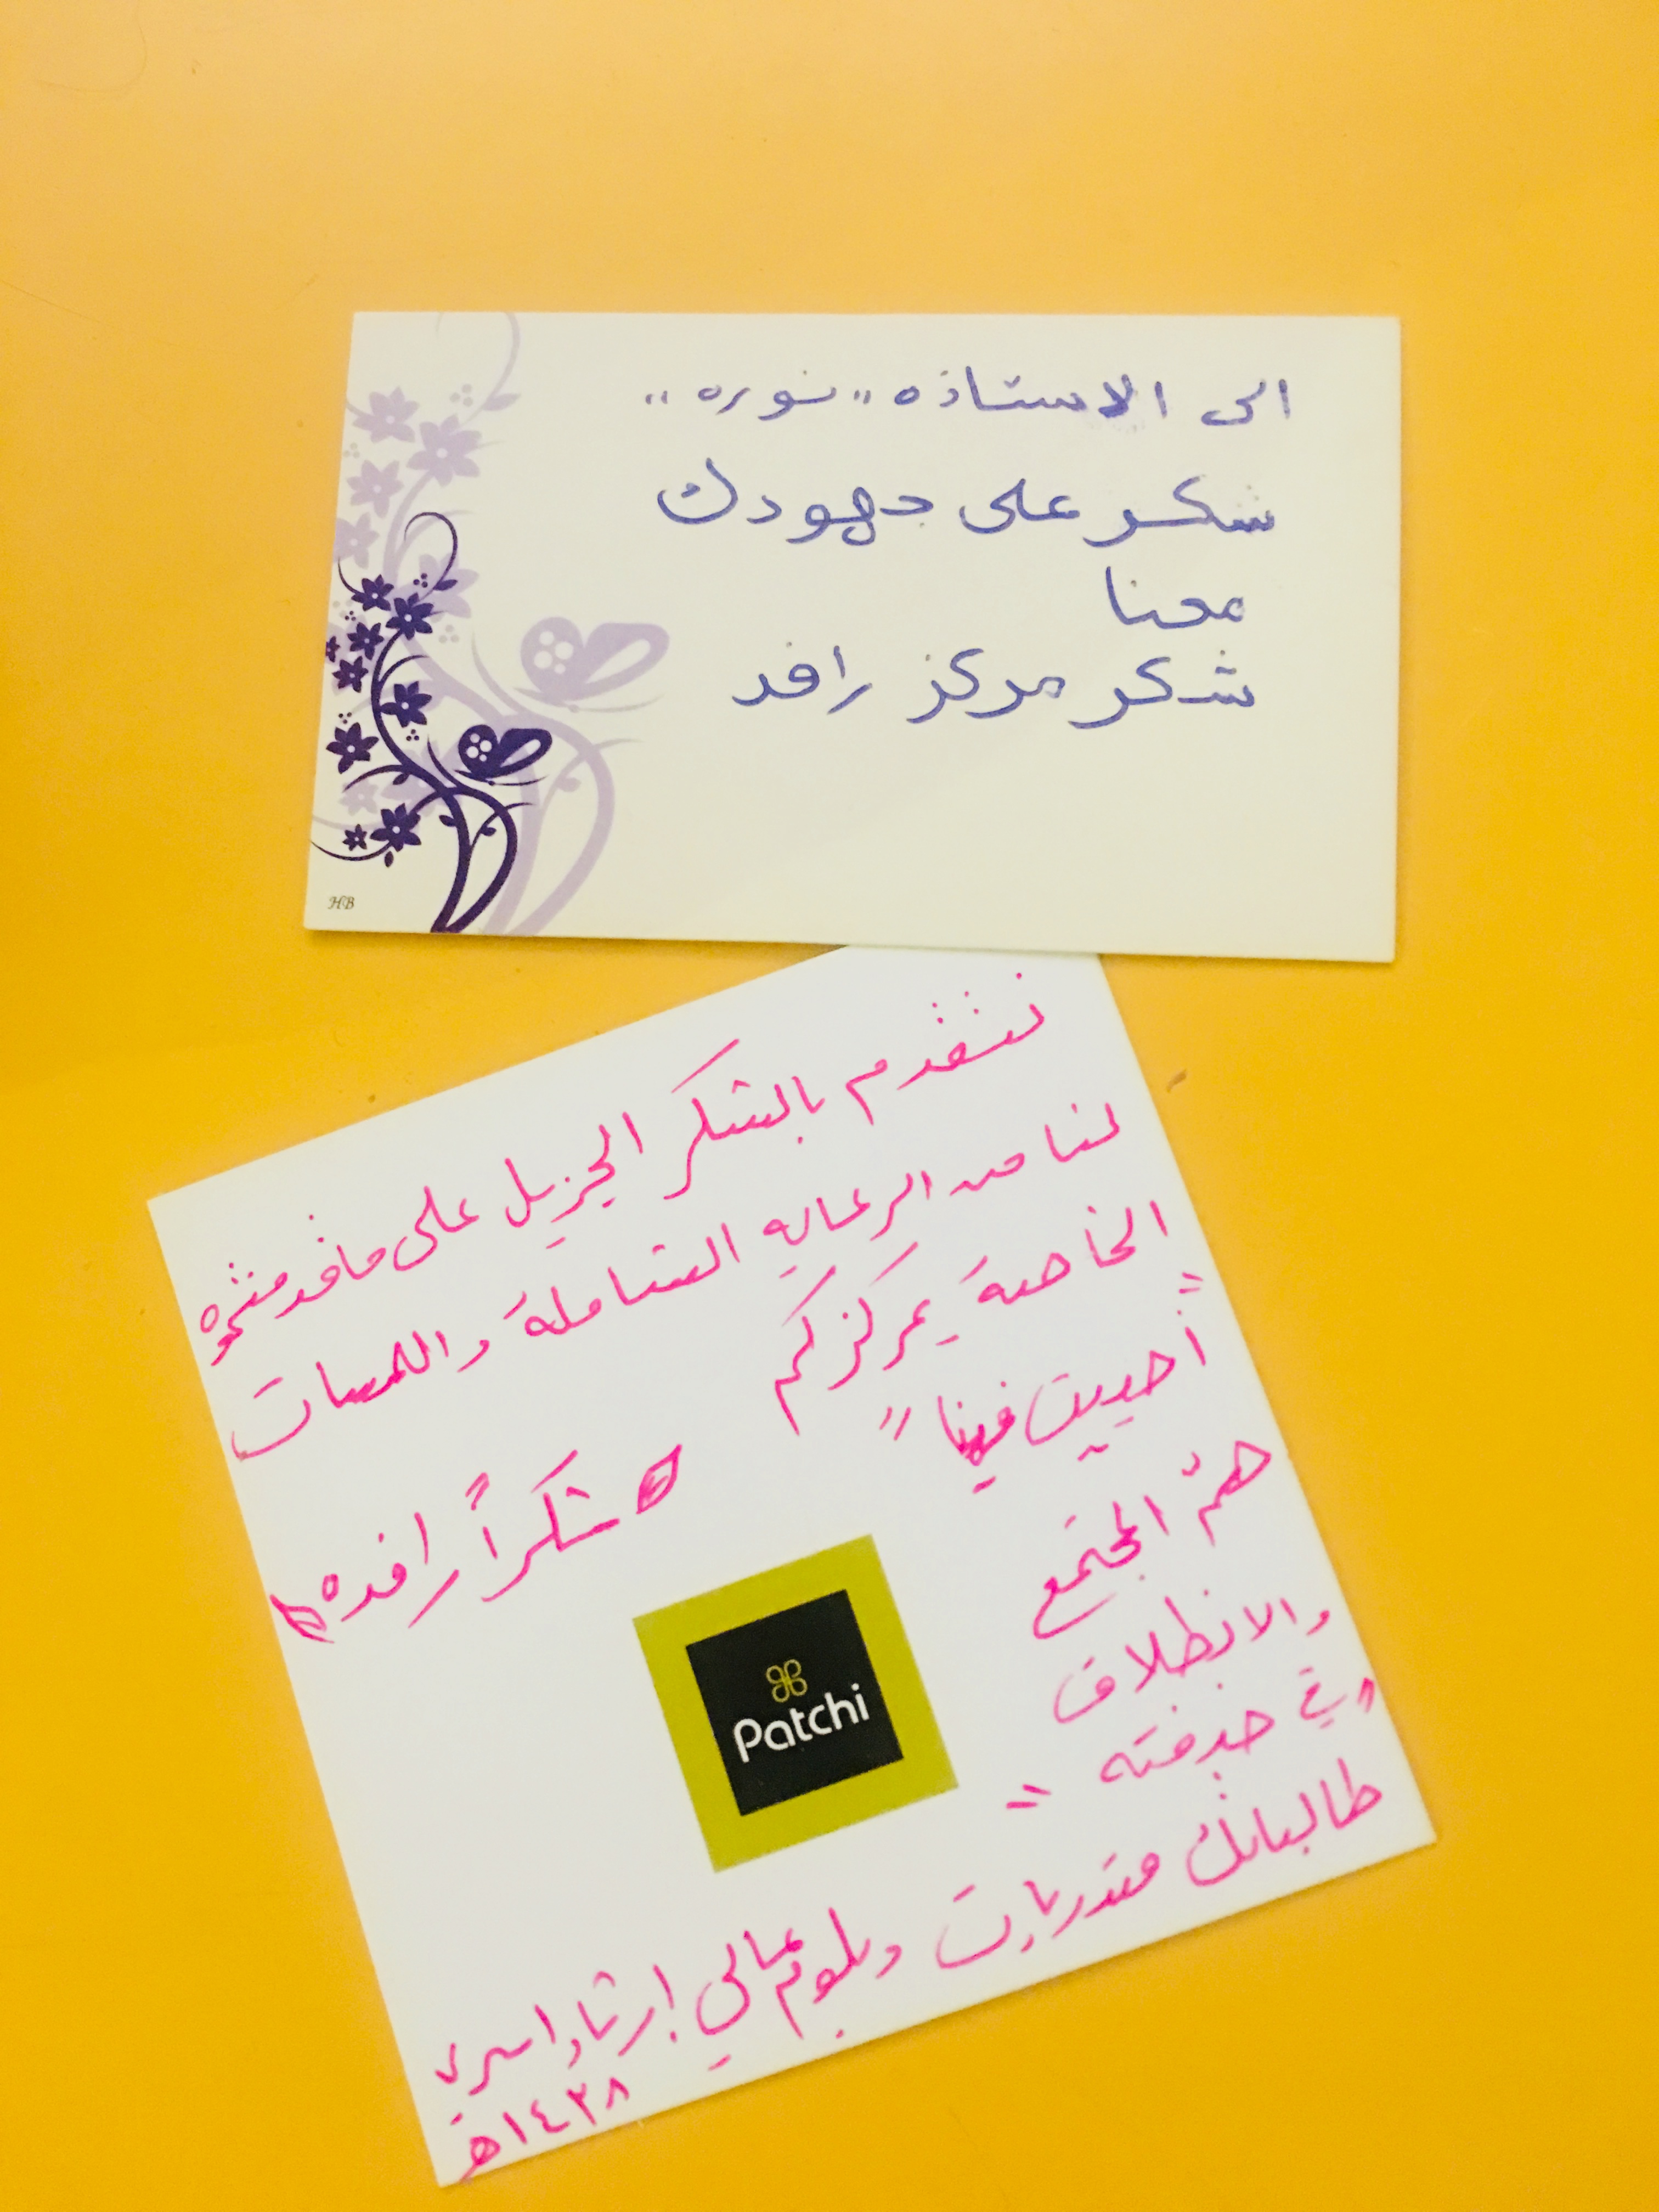 الى الاستاذه "نوره"
شكر على جهودك
معنا
شكر مركز رافد
HB
نتقدم بالشكر الجزيل على ماقدمتموه
لنا من الرعايه الشاملة واللمسات
الخاصة بمركزكم
"أحييت فينا"
همّ المجتمع
والانطلاق
في خدمته"
شكراً رافده
Patchi
طالباتك متدربات دبلوم عالي إرشاد اسري
١٤٣٨هـ